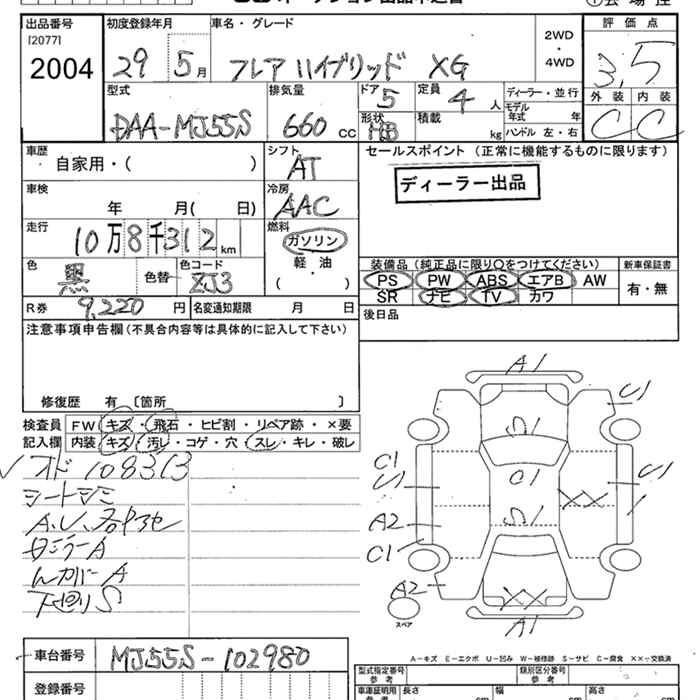 出品番号
[2077]
2004
初度登録年月
29 5月
車名・グレード
フレアハイブリッド XG
2WD
・
4WD
評価点
3.5
外装 内装
C C
型式
DAA-MJ55S
排気量
660 CC
ドア
5
形状
HB
定員
4 人
積載
kg
ディーラー・並行
モデル
年式 年
ハンドル 左・右
車歴
自家用・( )
シフト
AT
セールスポイント (正常に機能するものに限ります)
ディーラー出品
車検
年 月( 日)
冷房
AAC
走行
10万8千312km
燃料
ガソリン
軽・油
( )
色
黒
色替
色コード
ZJ3
装備品 (純正品に限り○をつけてください)
PS PW ABS エアB AW
SR ナビ TV カワ
新車保証書
有・無
R券 9,220 円
名変通知期限 月 日
後日品
注意事項申告欄(不具合内容等は具体的に記入して下さい)
修復歴 有 〔箇所 〕
検査員 FW キズ・飛石・ヒビ割・リペア跡・×要
記入欄 内装 キズ・汚レ・コゲ・穴・スレ・キレ・破レ
オド 108313
シートシミ
A.U.各中地
Mミラー A
A
下廻り S
A1
C1
C1
U1
A2
C1
A2
A1
U1
1
XX
XX
スペア
A-キズ E-エクボ U-凹み W-補修跡 S-サビ C-腐食 XX-交換済
車台番号
MJ55S-102980
登録番号
型式指定番号
参考
類別区分番号
参考
車庫証明用
参考
長さ cm
幅 cm
高さ cm